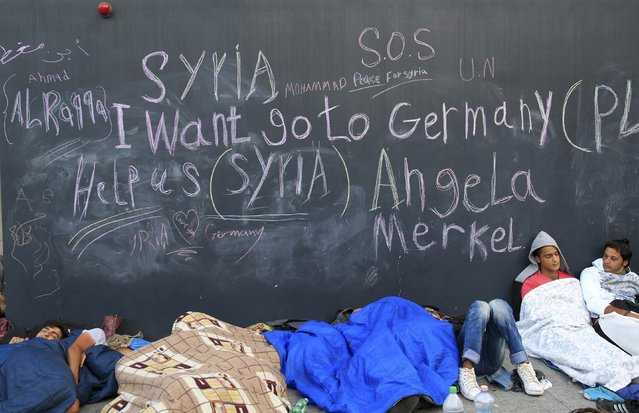 S.O.S
SYRIA
Ahmad
MOHAMMAD
Peace For Syria
U.N
ALRaqqa
I Want go to Germany (PL
Help us (SYRIA) Angela
Merkel
Germany